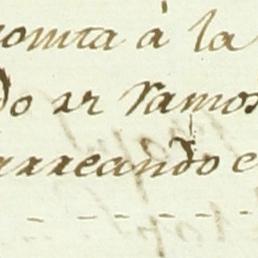 omta à la
do ar vamos
arreando e